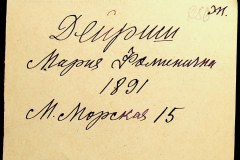 ж.
Дейриш
Мария Фоминична
1891
М. Морская 15